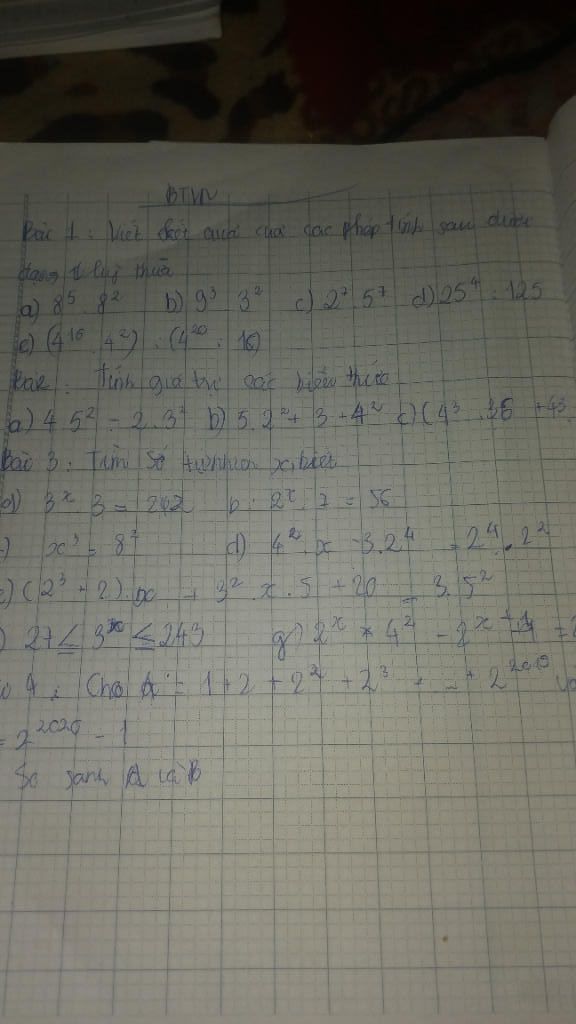 BTVN
Bài 1: Viết kết quả của các phép tính sau dưới
dạng 1 luỹ thừa
a) 8⁵ . 8² b) 9³ . 3² c) 2⁷ . 5⁷ d) 25⁴ : 125
e) (4¹⁶ . 4²) : (4²⁰ : 16)
Bài 2: Tính giá trị các biểu thức
a) 4 . 5² - 2 . 3² b) 5 . 2² + 3 + 4² c) (4³ . 36 + 4³
Bài 3: Tìm số tự nhiên x, biết
3ˣ . 3 = 242 b: 2ˣ . 7 = 56
) x³ = 8² d) 4² . x - 3.2⁴ = 2⁴ . 2²
) (2³ + 2) . x + 3² . x . 5 + 20 = 3 . 5²
) 27 ≤ 3ˣ ≤ 243 g) 2ˣ . 4² - 2ˣ⁺¹
4: Cho A = 1 + 2 + 2² + 2³ + ... + 2²⁰⁰
= 2²⁰²⁰ - 1
So sánh A và B